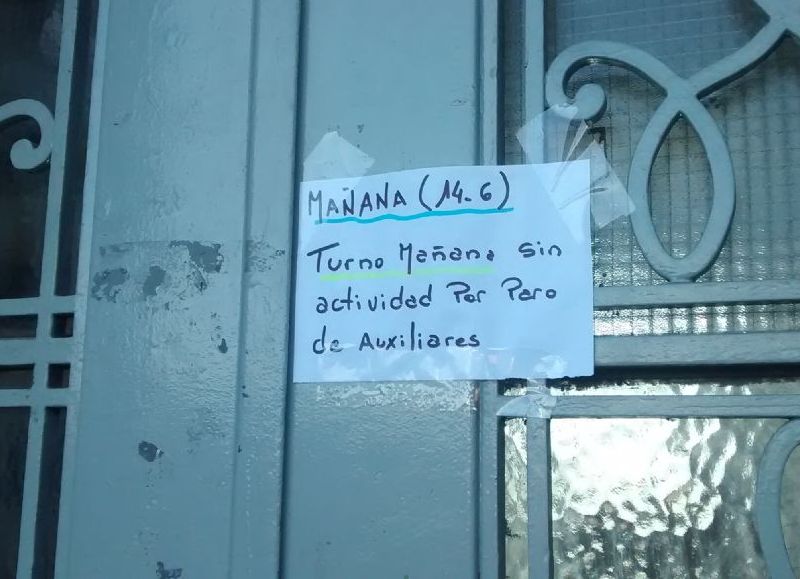 MAÑANA (14-6)
Turno Mañana Sin
actividad Por Paro
de Auxiliares